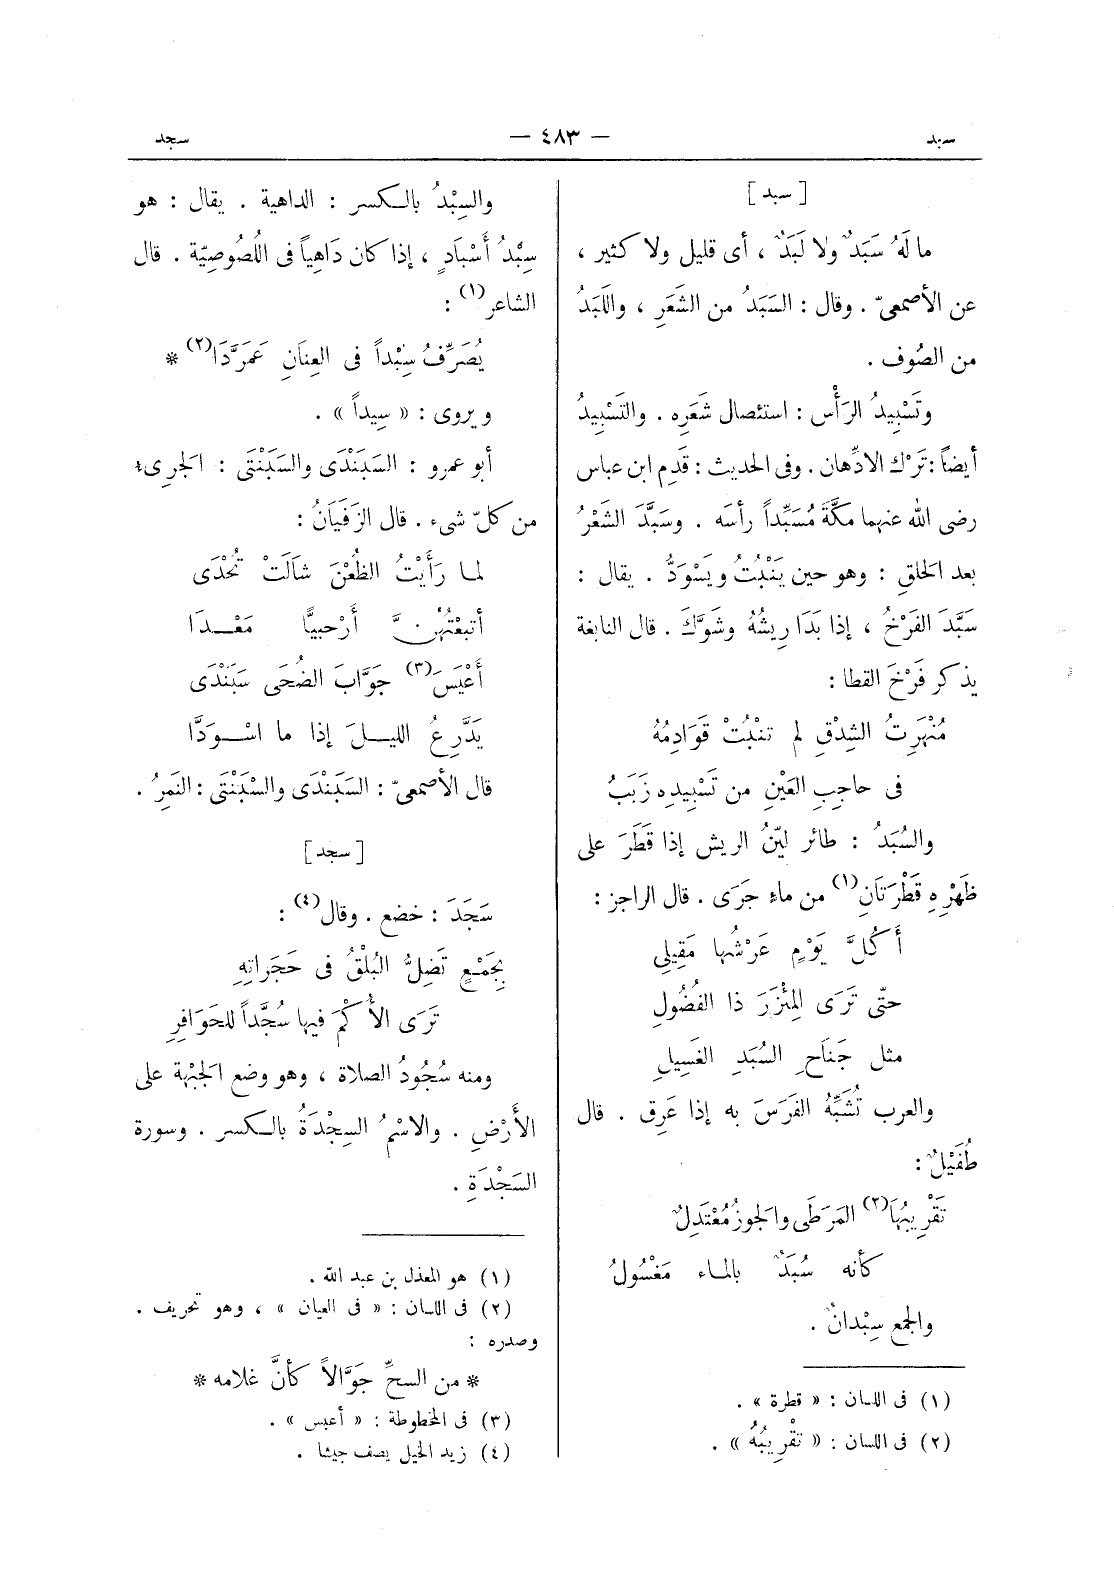 سبد — ٤٨٣ — سجد
[ سبد ]
ما لَهُ سَبَدٌ ولا لَبَدٌ ، أى قليل ولا كثير ،
عن الأصمعىّ . وقال : السَبَدُ من الشَعَرِ ، واللَبَدُ
من الصُوف .
وتَسْبِيدُ الرَأْس : استئصال شَعَرِه . والتَسْبِيدُ
أيضاً : تَرْك الادِّهان . وفى الحديث : قَدِم ابن عباس
رضى الله عنهما مكَّةَ مُسَبِّداً رأسَه . وسَبَّدَ الشَعْرُ
بعد الحَلقِ : وهو حين يَنْبُتُ ويَسْوَدُّ . يقال :
سَبَّدَ الفَرْخُ ، إذا بَدَا رِيشُهُ وشَوَّكَ . قال النابغة
يذكر فَرْخَ القطا :
مُنْهَرِتُ الشِدْقِ لم تنْبُتْ قَوَادِمُهُ
فى حاجِبِ العَيْنِ من تَسْبِيدِه زَبَبُ
والسُبَدُ : طائر ليِّنُ الريش إذا قَطَرَ على
ظَهْرِهِ قَطْرَتَانِ(١) من ماءٍ جَرَى . قال الراجز :
أَكُلَّ يَوْمٍ عَرْشُها مَقِيلِى
حتّى تَرَى المِئْزَرَ ذا الفُضُولِ
مثل جَنَاحِ السُبَدِ الغَسِيلِ
والعرب تُشَبِّهُ الفَرَسَ به إذا عَرِق . قال
طُفَيْلٌ :
تَقْرِيبُهَا(٢) المَرَطَى والجَوزُ مُعْتَدِلٌ
كأنه سُبَدٌ بالماء مَغْسُولُ
والجمع سِبْدانٌ .
(١) فى اللسان : « قطرة » .
(٢) فى اللسان : « تقْرِيبُهُ » .
والسِبْدُ بالكسر : الداهية . يقال : هو
سِبْدُ أَسْبَادٍ ، إذا كان دَاهِياً فى اللُصُوصِيّة . قال
الشاعر(١) :
يُصَرِّفُ سِبْداً فى العِنَانِ عَمَرَّدَا(٢) *
ويروى : « سِيداً » .
أبو عمرو : السَبَنْدَى والسَبَنْتَى : الجرىء
من كلّ شىء . قال الزَفَيَانُ :
لما رَأَيْتُ الظُعْنَ شالَتْ تُحْدَى
أتبعْتُهُنَّ أَرْحبيًّا مَعْدَا
أَعْيَسَ(٣) جَوَّابَ الضُحَى سَبَنْدَى
يَدَّرِعُ الليلَ إذا ما اسْوَدَّا
قال الأصمعىّ : السَبَنْدَى والسْبَنْتَى : النَمِرُ .
[ سجد ]
سَجَدَ : خضع . وقال(٤) :
بِجَمْعٍ تَضِلُّ البُلْقُ فى حَجَرَاتِهِ
تَرَى الأُكْمَ فيها سُجَّداً للحَوَافِرِ
ومنه سُجُودُ الصلاة ، وهو وضع الجَبْهة على
الأَرْضِ . والاسْمُ السِجْدَةُ بالكسر . وسورة
السَجْدَةِ .
(١) هو المعذل بن عبد الله .
(٢) فى اللسان : « فى العيان » ، وهو تحريف .
وصدره :
* من السحِّ جَوَّالاً كأنَّ غلامه *
(٣) فى المخطوطة : « أعبس » .
(٤) زيد الخيل يصف جيشا .